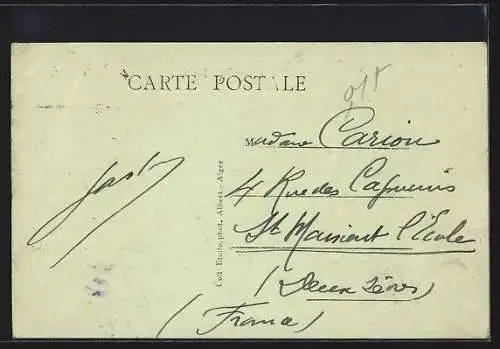 CARTE POSTALE
Madame Carion
4 Rue des
St Maixent l'École
(Deux Sèvres)
(France)
Coll. Etoile, phot. Albert - Alger